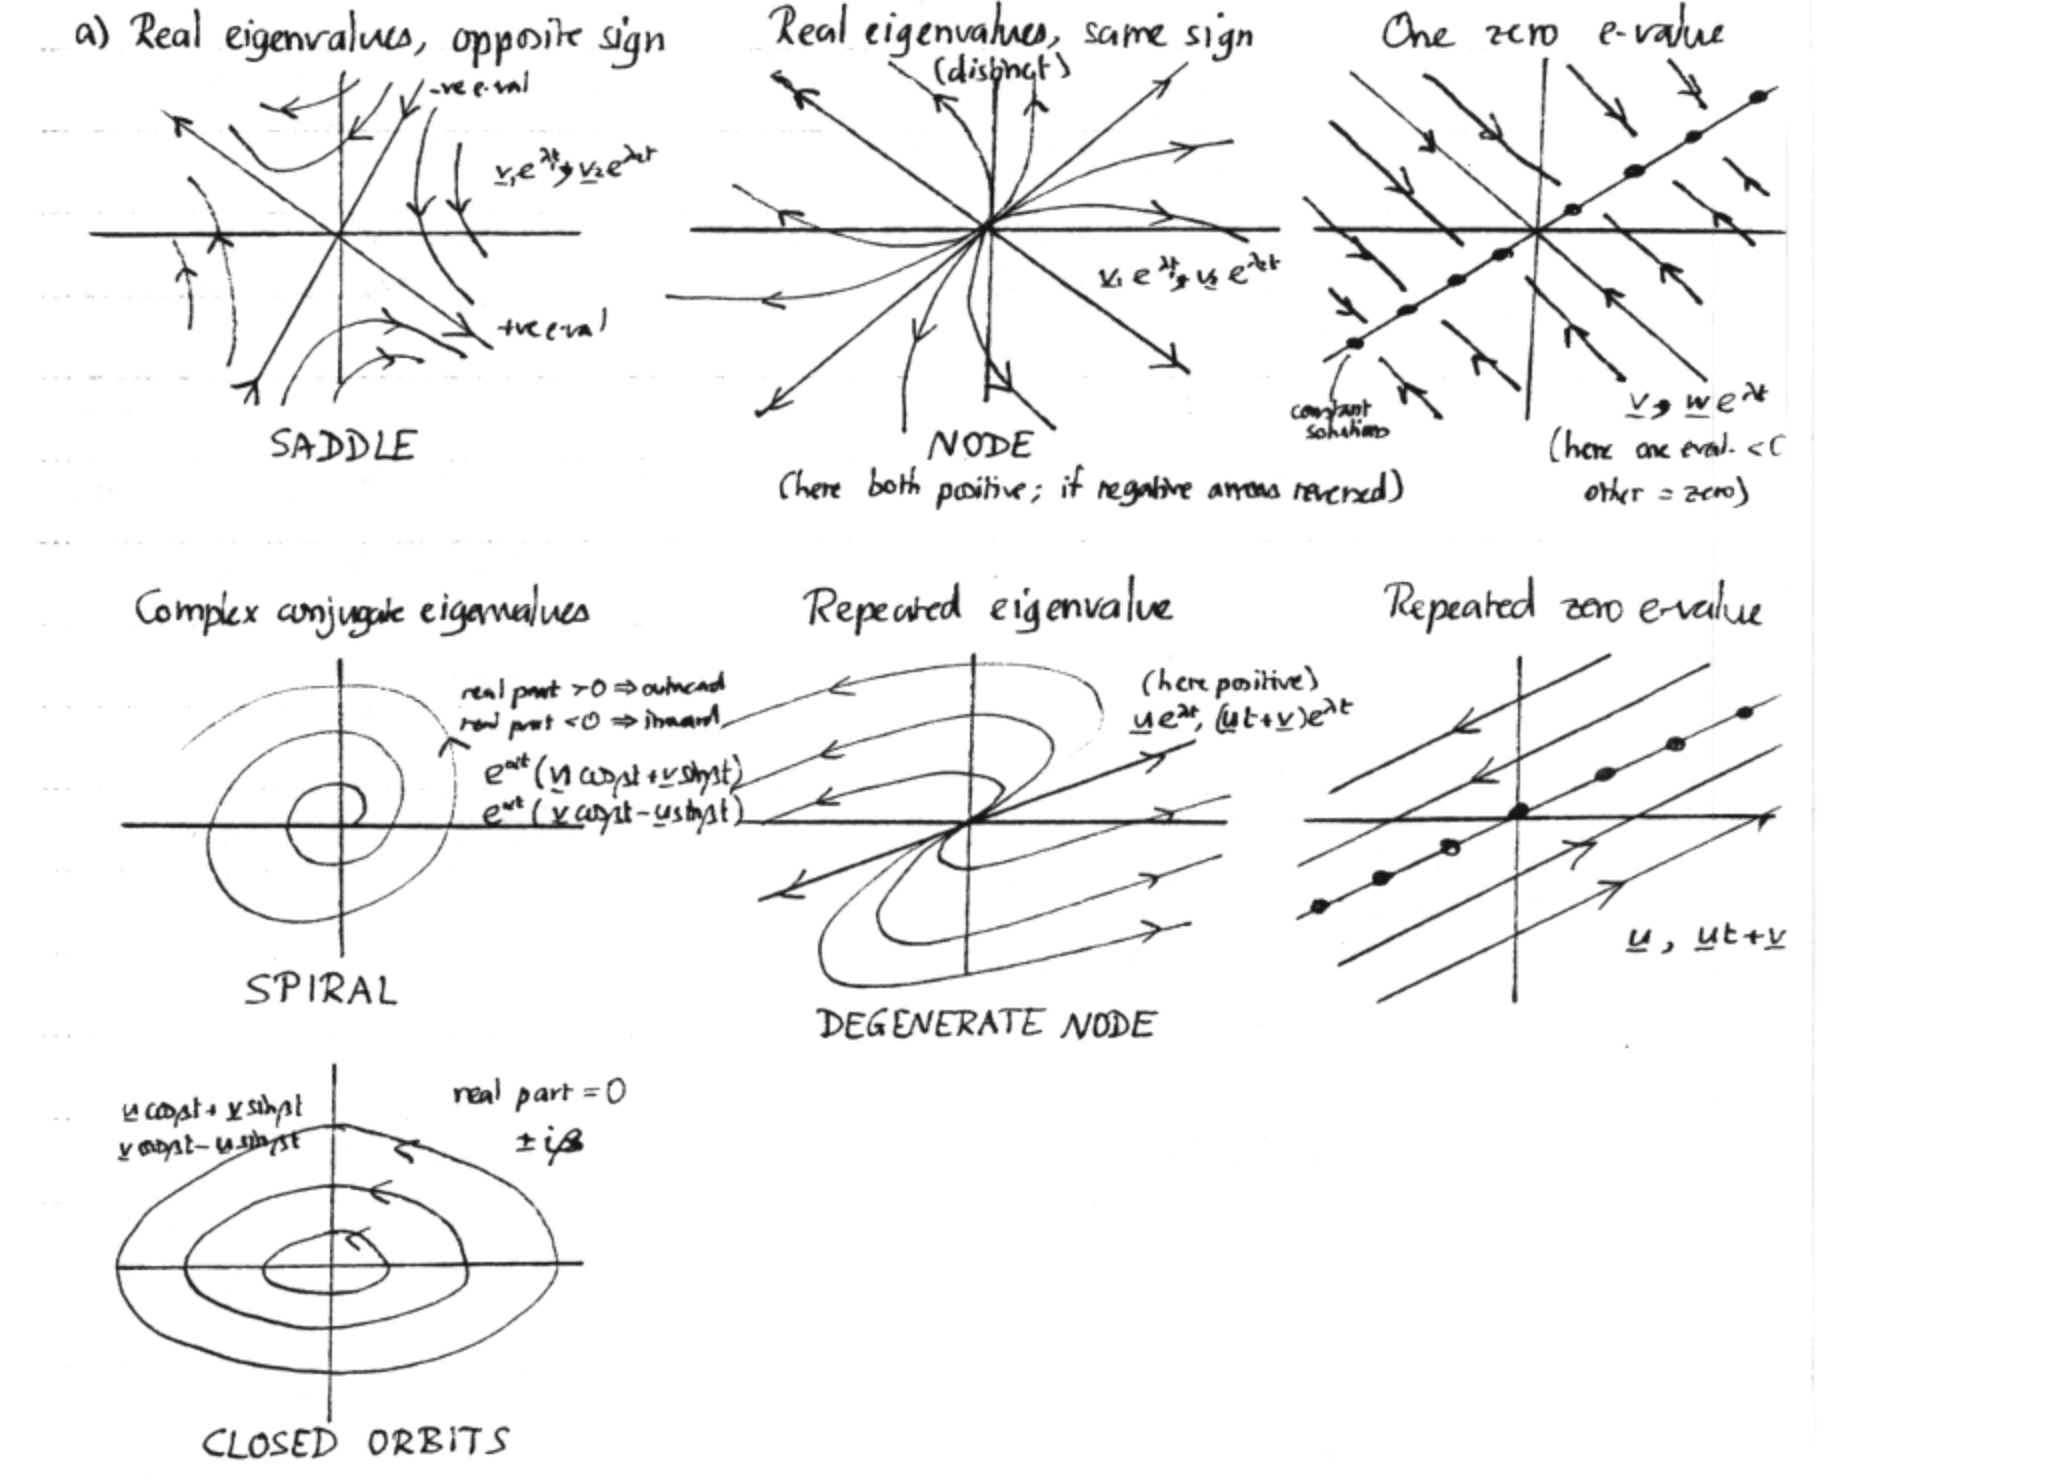 a) Real eigenvalues, opposite sign
-ve e-val
v₁e^λ₁t, v₂e^λ₂t
+ve e-val
SADDLE
Real eigenvalues, same sign
(distinct)
v₁e^λ₁t, v₂e^λ₂t
NODE
(here both positive; if negative arrows reversed)
One zero e-value
constant
solutions
v, w e^λt
(here one eval. < 0
other = zero)
Complex conjugate eigenvalues
real part > 0 ⇒ outward
real part < 0 ⇒ inward
e^αt (u cosβt + v sinβt)
e^αt (v cosβt - u sinβt)
SPIRAL
Repeated eigenvalue
(here positive)
u e^λt, (ut+v)e^λt
DEGENERATE NODE
Repeated zero e-value
u, ut+v
u cosβt + v sinβt
v cosβt - u sinβt
real part = 0
± iβ
CLOSED ORBITS